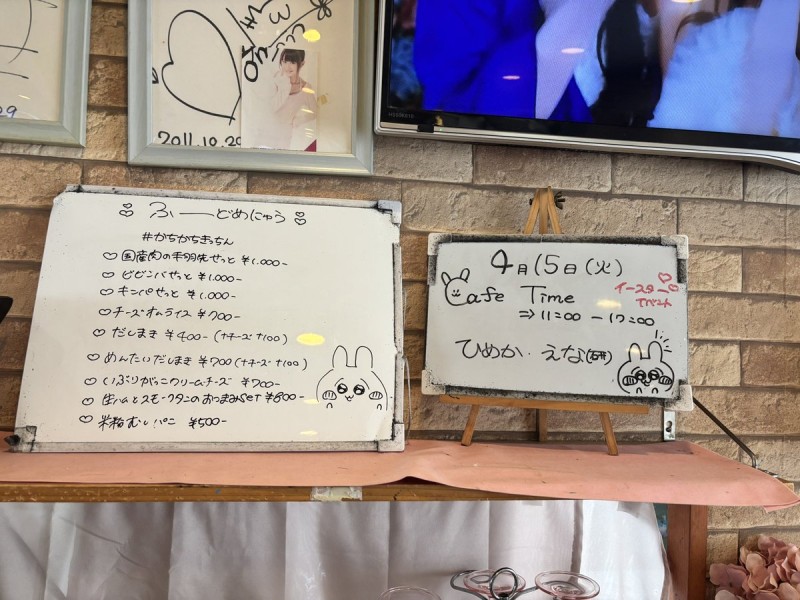 2011.10.29
ふーどめにゅう
#かちかちきっちん
国産肉の半羽焼せっと ¥1.000-
ビビンバせっと ¥1.000-
キンパせっと ¥1.000-
チーズオムライス ¥700-
だしまき ¥400- (+チーズ+100)
めんたいだしまき ¥700 (+チーズ+100)
いぶりがっこクリームチーズ ¥700-
生ハムとスモークタンのおつまみset ¥800-
米粉むしぱん ¥500-
4月15日(火)
Cafe Time
⇒11:00 - 17:00
イースター
イベント
ひめか・えな